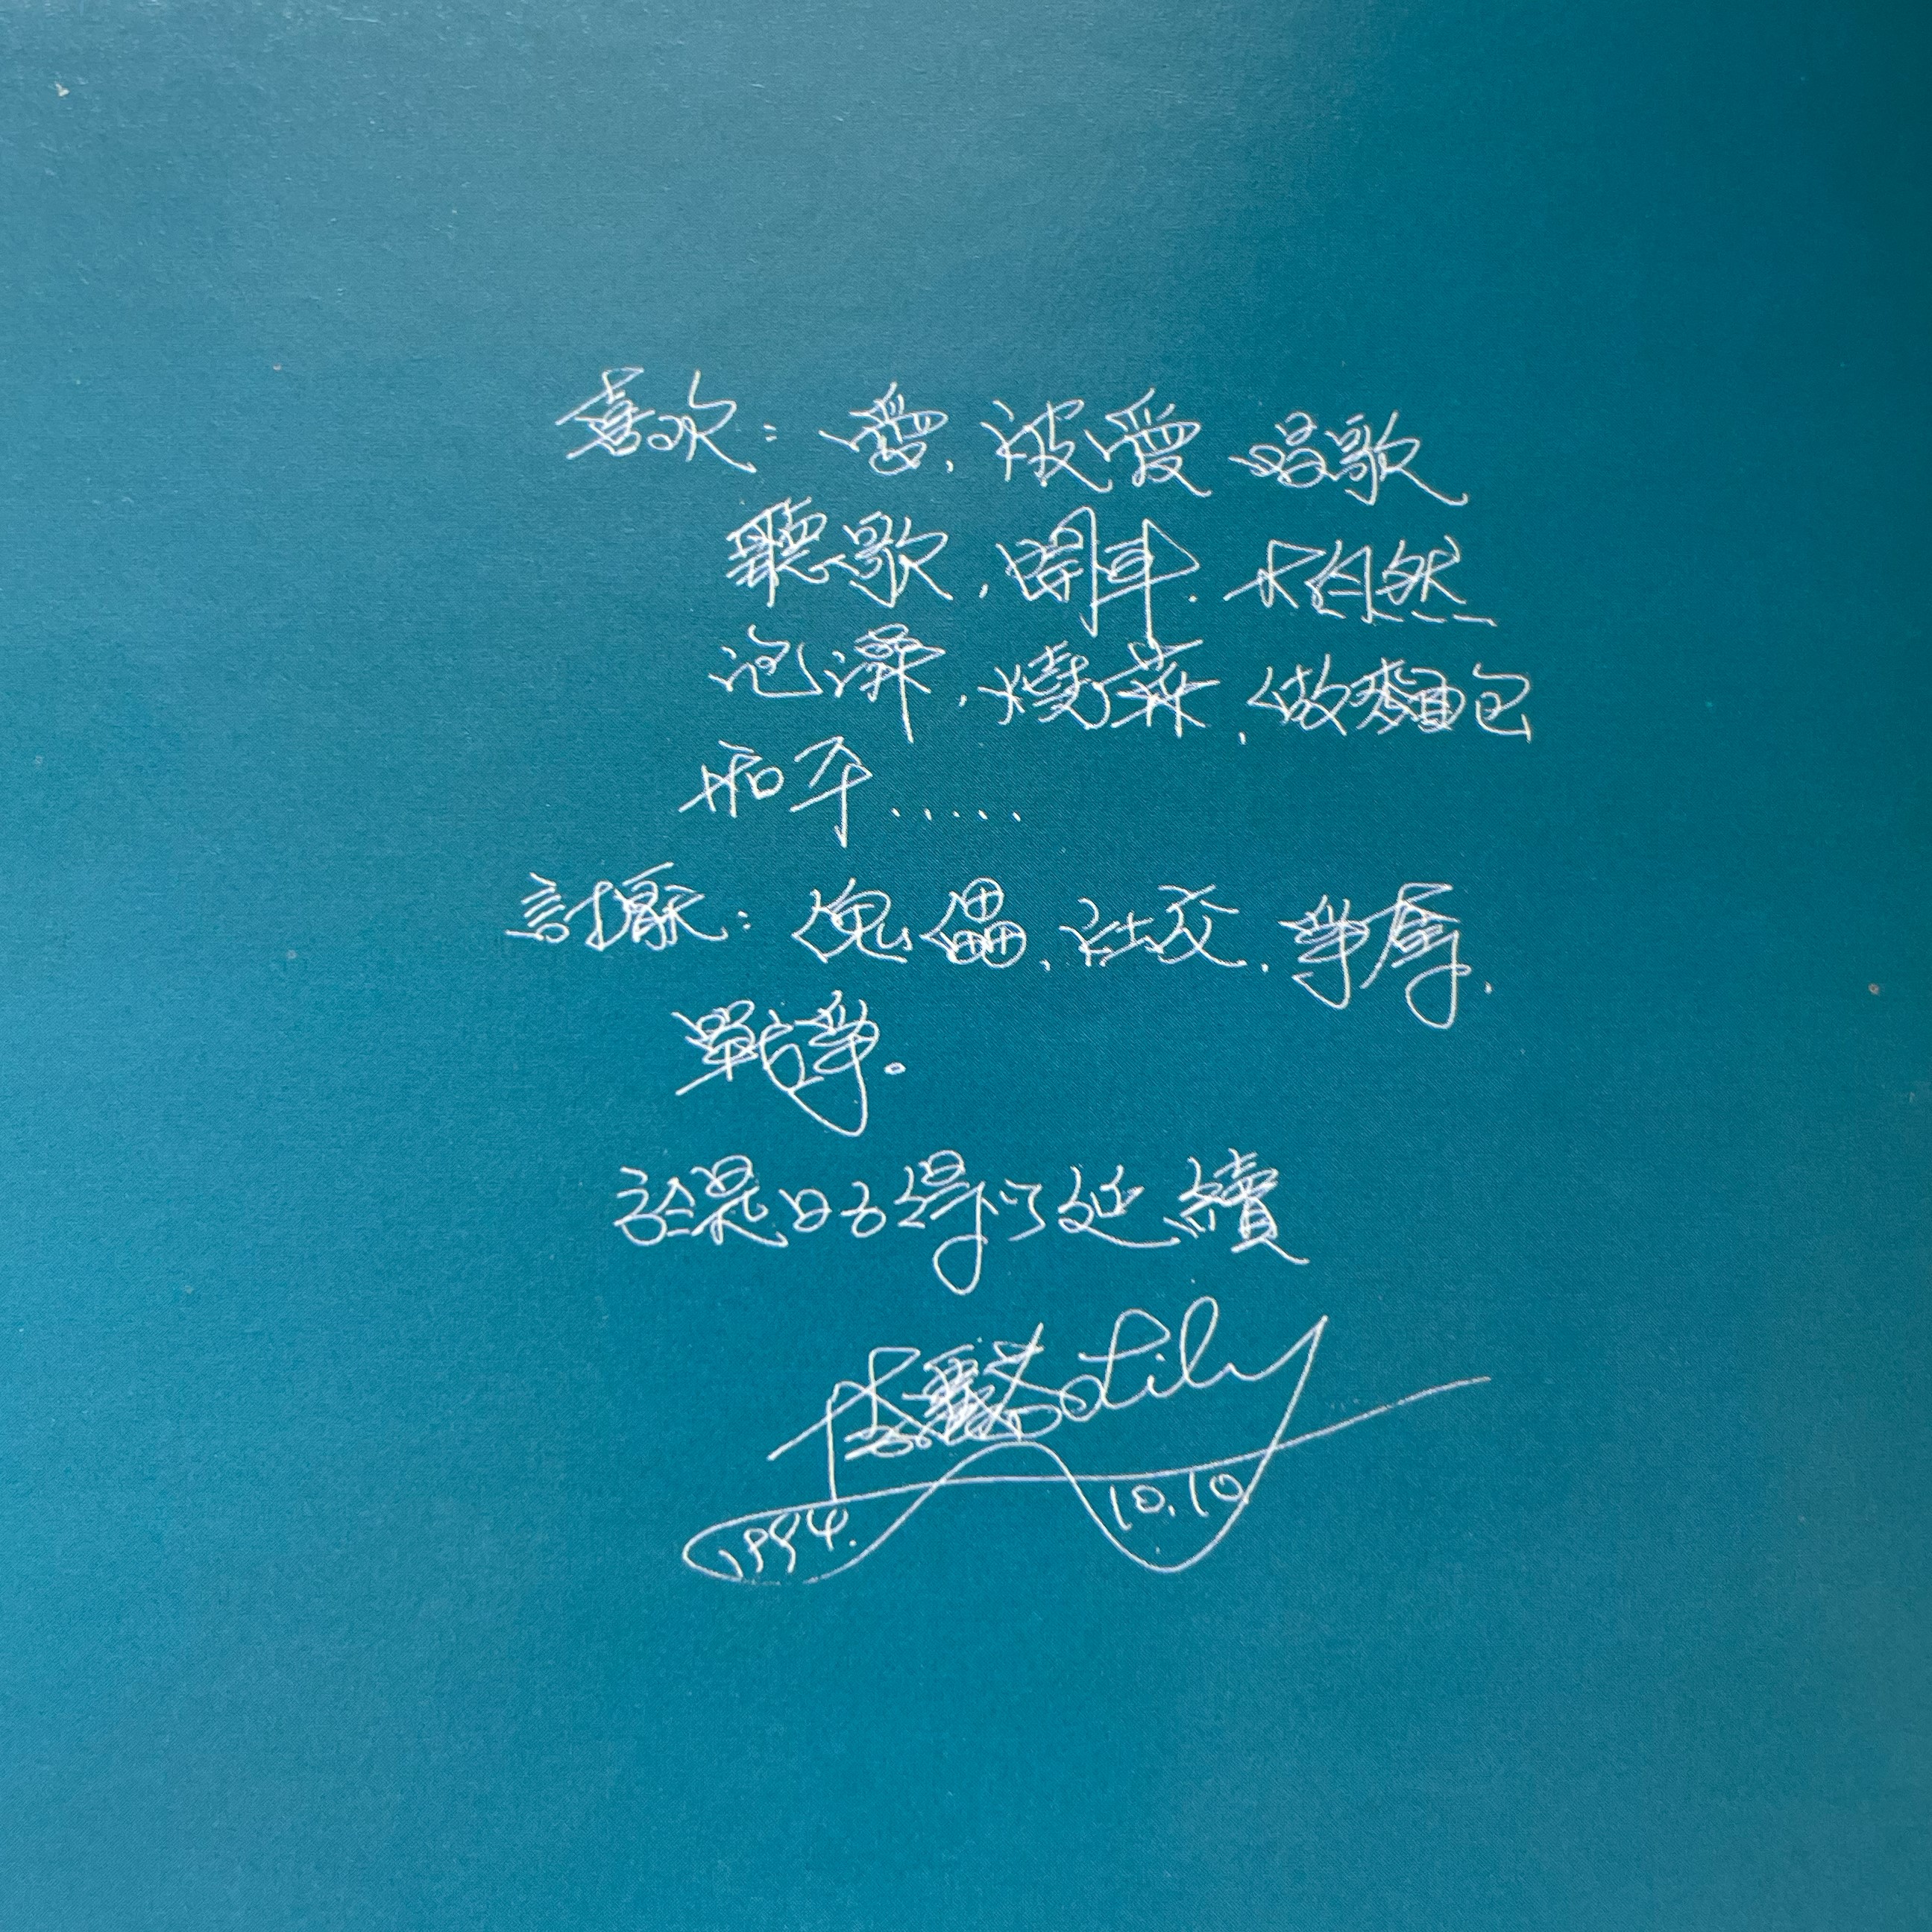 喜欢：愛、被愛 唱歌
聽歌，開車．大自然
泡澡，燒菜，做麵包
和平……
討厭：傀儡、社交、爭辱．
戰爭。
於是日子得以延續
李翊君 Lily
1994. 10.10